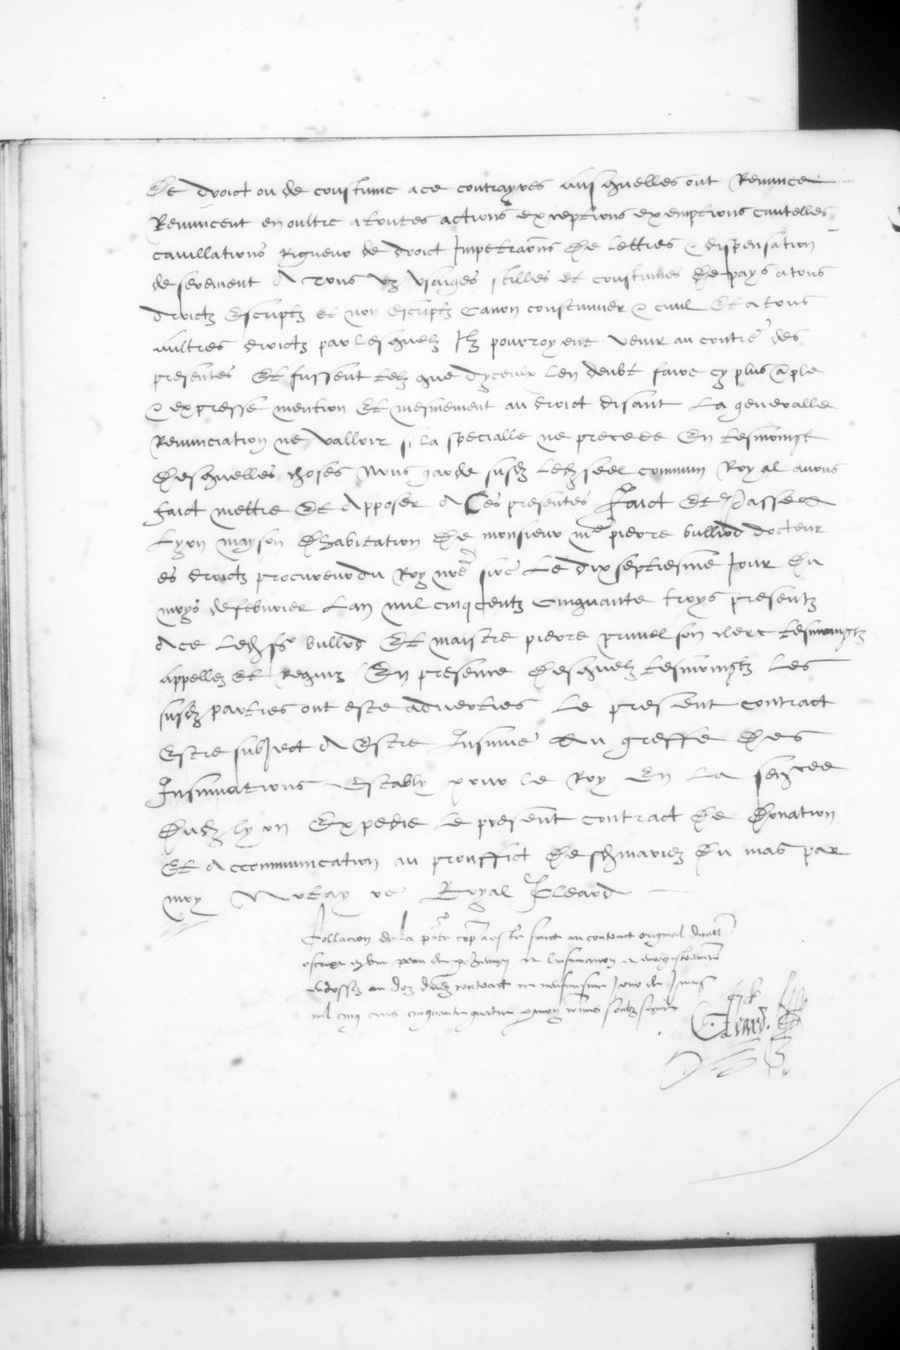 De droict ou de coustume ace contrayres Ausquelles ont Renunce
Renuncent en oultre atoutes actions exceptions exemptions cautelles
cauillations Rigueur de droict Impetracons de lettres & dispensation
de serement A Tous us Vsaiges stilles et coustumes de pays atous
droictz Escriptz et non escriptz Canon coustumier & ciuil Et atous
aultres droictz par lesquelz Ilz pourroyent venir au contre des
presentes Et fussent telz que dyceulx len deubt faire cy plus aple
& expresse mention Et mesmement au droict disant La generalle
Renunciation ne valloir si la specialle ne precede En tesmoingt
desquelles choses Nous garde susd ledz seel commun Royal auons
faict mettre Et Apposer A Ces presentes Faict Et Passe a
Lyon mayson dhabitation de monsieur me pierre bulliod docteur
es droictz procureur du Roy nre sire Le dix septiesme Jour du
moys de feburier Lan mil cinq centz cinquante troys presentz
Ace Ledz sr bulliod Et maistre pierre son clerc tesmoingtz
appellez Et Requis En presence desquelz tesmoingtz Les
susdz parties ont este aduerties Le present contract
Estre subject A Estre Insinue Au greffe des
Insinuations Estably pour le Roy En La
dudz lyon Expedie Le present contract de donation
Et Accommunication au prouffict de du mas par
moy Notayre Royal
Collacion de la pnte cop a este faict au contract original
escript en
au doz dudz contract Jour de
mil cinq cens cinquante quatre par moy